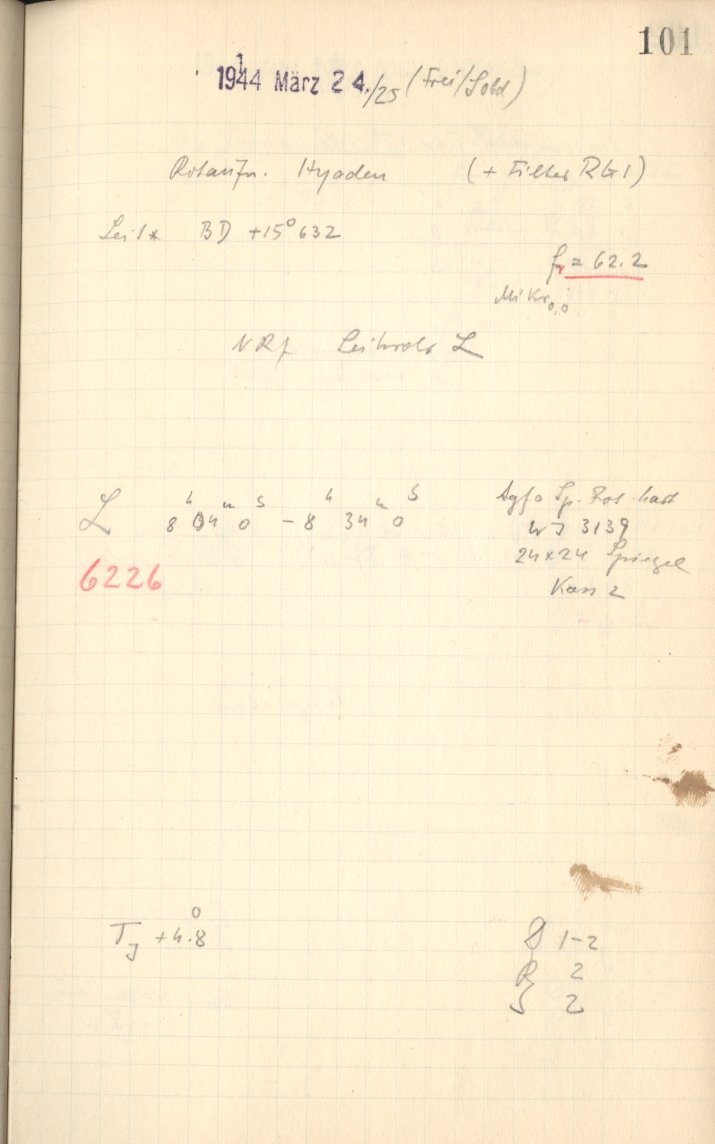 101
1944 März 24./25 (Frei/Sobd)
Rotaufn. Hyaden (+ Filter RG1)
Leit* BD +15° 632
fr = 62.2
Mikr 0,0
NRf Leitrohr L
L 8ʰ 04ᵐ 0ˢ – 8ʰ 34ᵐ 0ˢ Agfa Sp. Rot hart
6226
3139
24x24 Spiegel
Kass 2
T +4.8°
1-2
R 2
S 2